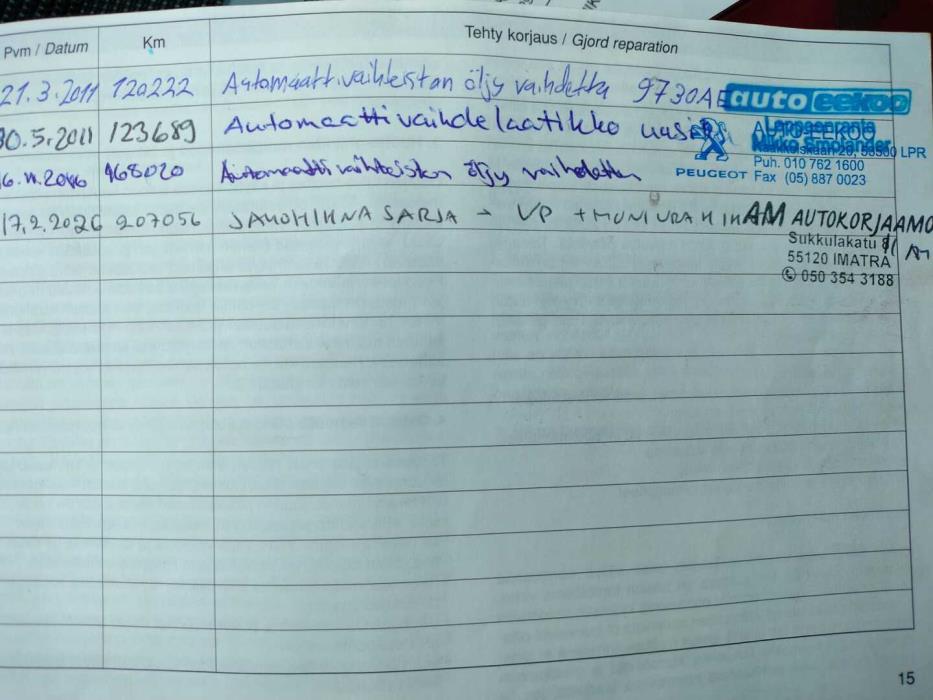 Pvm / Datum Km Tehty korjaus / Gjord reparation
21.3.2011 120222 Automaattivaihteiston öljy vaihdettu 9730AE
auto eekoo
30.5.2011 123689 Automaattivaihdelaatikko uusi
AUTO-EEKOO
Lappeenranta
Mikko Smolander
LPR
Puh. 010 762 1600
PEUGEOT Fax (05) 887 0023
168020 Automaattivaihteiston öljy vaihdettu
17.2.2026 207056 JAKOHIHNA SARJA → VP +
AM AUTOKORJAAMO
Sukkulakatu
55120 IMATRA
050 354 3188
15